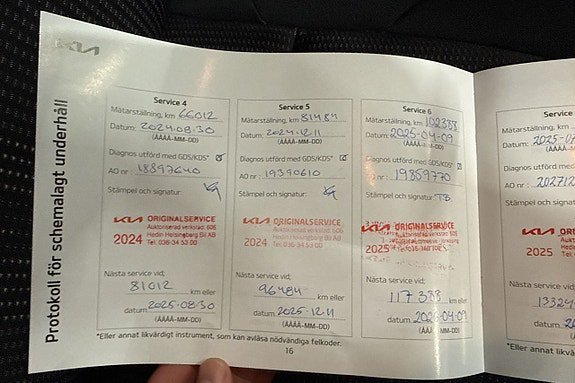 KIA
Protokoll för schemalagt underhåll
Service 4
Mätarställning, km 66012
Datum: 2024.08.30
(ÅÅÅÅ-MM-DD)
Diagnos utförd med GDS/KDS*
AO nr: 18897640
Stämpel och signatur:
KIA ORIGINALSERVICE
Auktoriserad verkstad: 606
Hedin Helsingborg Bil AB
2024 Tel. 036-34 53 00
Nästa service vid;
81012 km eller
datum 2025-08-30
(ÅÅÅÅ-MM-DD)
Service 5
Mätarställning, km 81484
Datum: 2024.12.11
(ÅÅÅÅ-MM-DD)
Diagnos utförd med GDS/KDS*
AO nr: 19390610
Stämpel och signatur:
KIA ORIGINALSERVICE
Auktoriserad verkstad: 606
Hedin Helsingborg Bil AB
2024 Tel. 036-34 53 00
Nästa service vid;
96484 km eller
datum 2025-12-11
(ÅÅÅÅ-MM-DD)
Service 6
Mätarställning, km 102388
Datum: 2025-04-09
(ÅÅÅÅ-MM-DD)
Diagnos utförd med GDS/KDS*
AO nr: 19859770
Stämpel och signatur: TB
KIA ORIGINALSERVICE
2025
Nästa service vid;
117 388 km eller
datum 2026-04-09
(ÅÅÅÅ-MM-DD)
*Eller annat likvärdigt instrument, som kan avläsa nödvändiga felkoder.
16
Mätarställning,
Datum: 2025-0
(ÅÅÅÅ
Diagnos utförd m
AO nr: 202712
Stämpel och sign
KIA ORIGI
Auktoris
Hedin
2025 Tel. 03
Nästa service vi
13324
datum
(ÅÅ